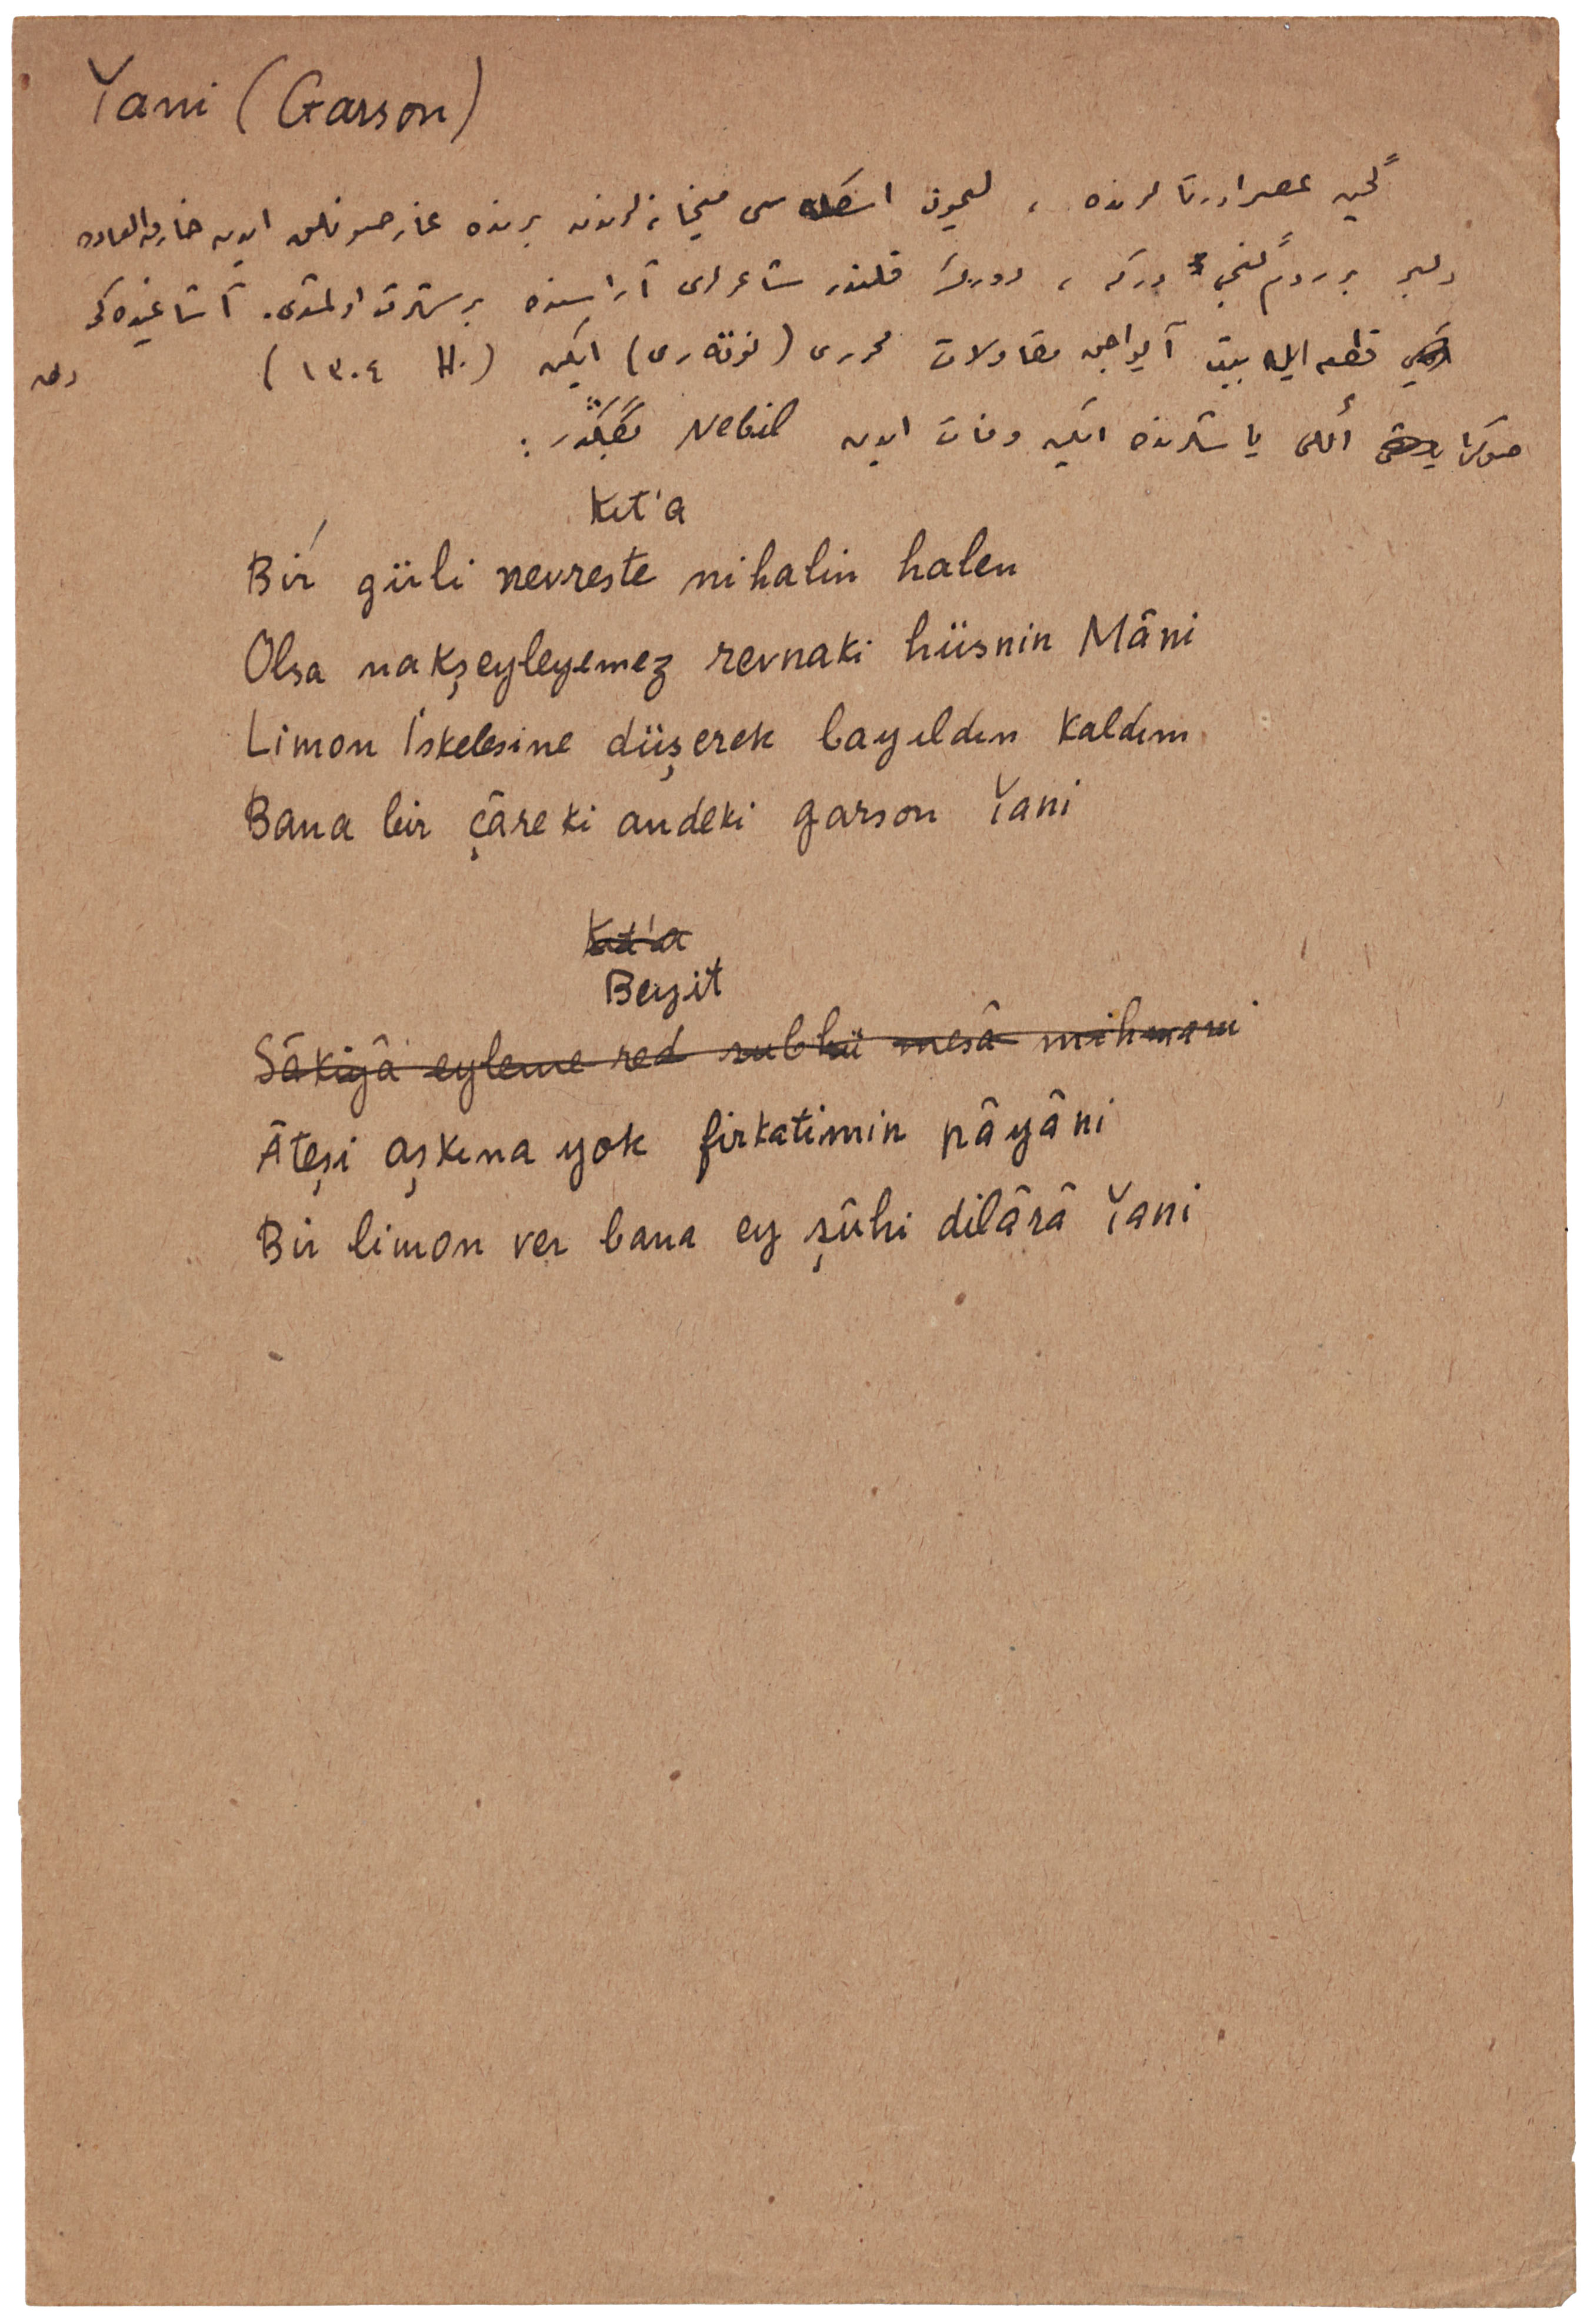 Yani (Garson)
گچن عصر اورتالرنده ، لیمون اسکله سی میخانه لرندن برنده غارصونلق ایدن خارق العاده
دلبر بر روم گنجی در که ، دورینڭ قلندر شاعرلری آراسنده بر شهرت اولمشدی. آشاغیده کی
قطعه ایله بیت آیواجق مقاولات محرری (نوته ری) ایکن (۱۳۰٤ H.) دن
صوکرا أللی یاشلرنده ایکن وفات ایدن Nebil گدر :
Kıt'a
Bir güli nevreste nihalin halen
Olsa nakşeyleyemez revnaki hüsnin Mâni
Limon İskelesine düşerek bayıldın kaldım
Bana bir çâreki andeki garson Yani
Kıt'a
Beyit
Sâkiyâ eyleme red subhü mesâ mihmani
Âteşi aşkına yok firkatimin pâyâni
Bir limon ver bana ey şûhi dilârâ Yani